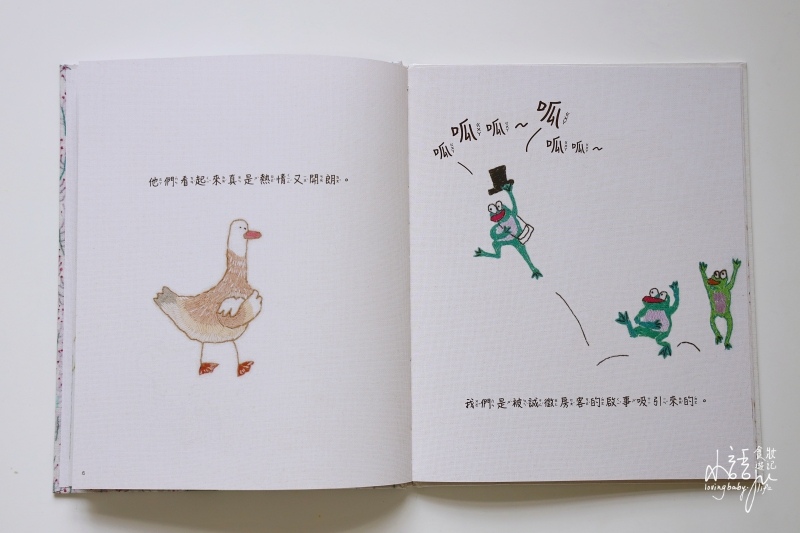 他們看起來真是熱情又開朗。
呱呱呱～呱
呱呱～
我們是被誠徵房客的啟事吸引來的。
小語
食遊
妝記
lovingbaby.life